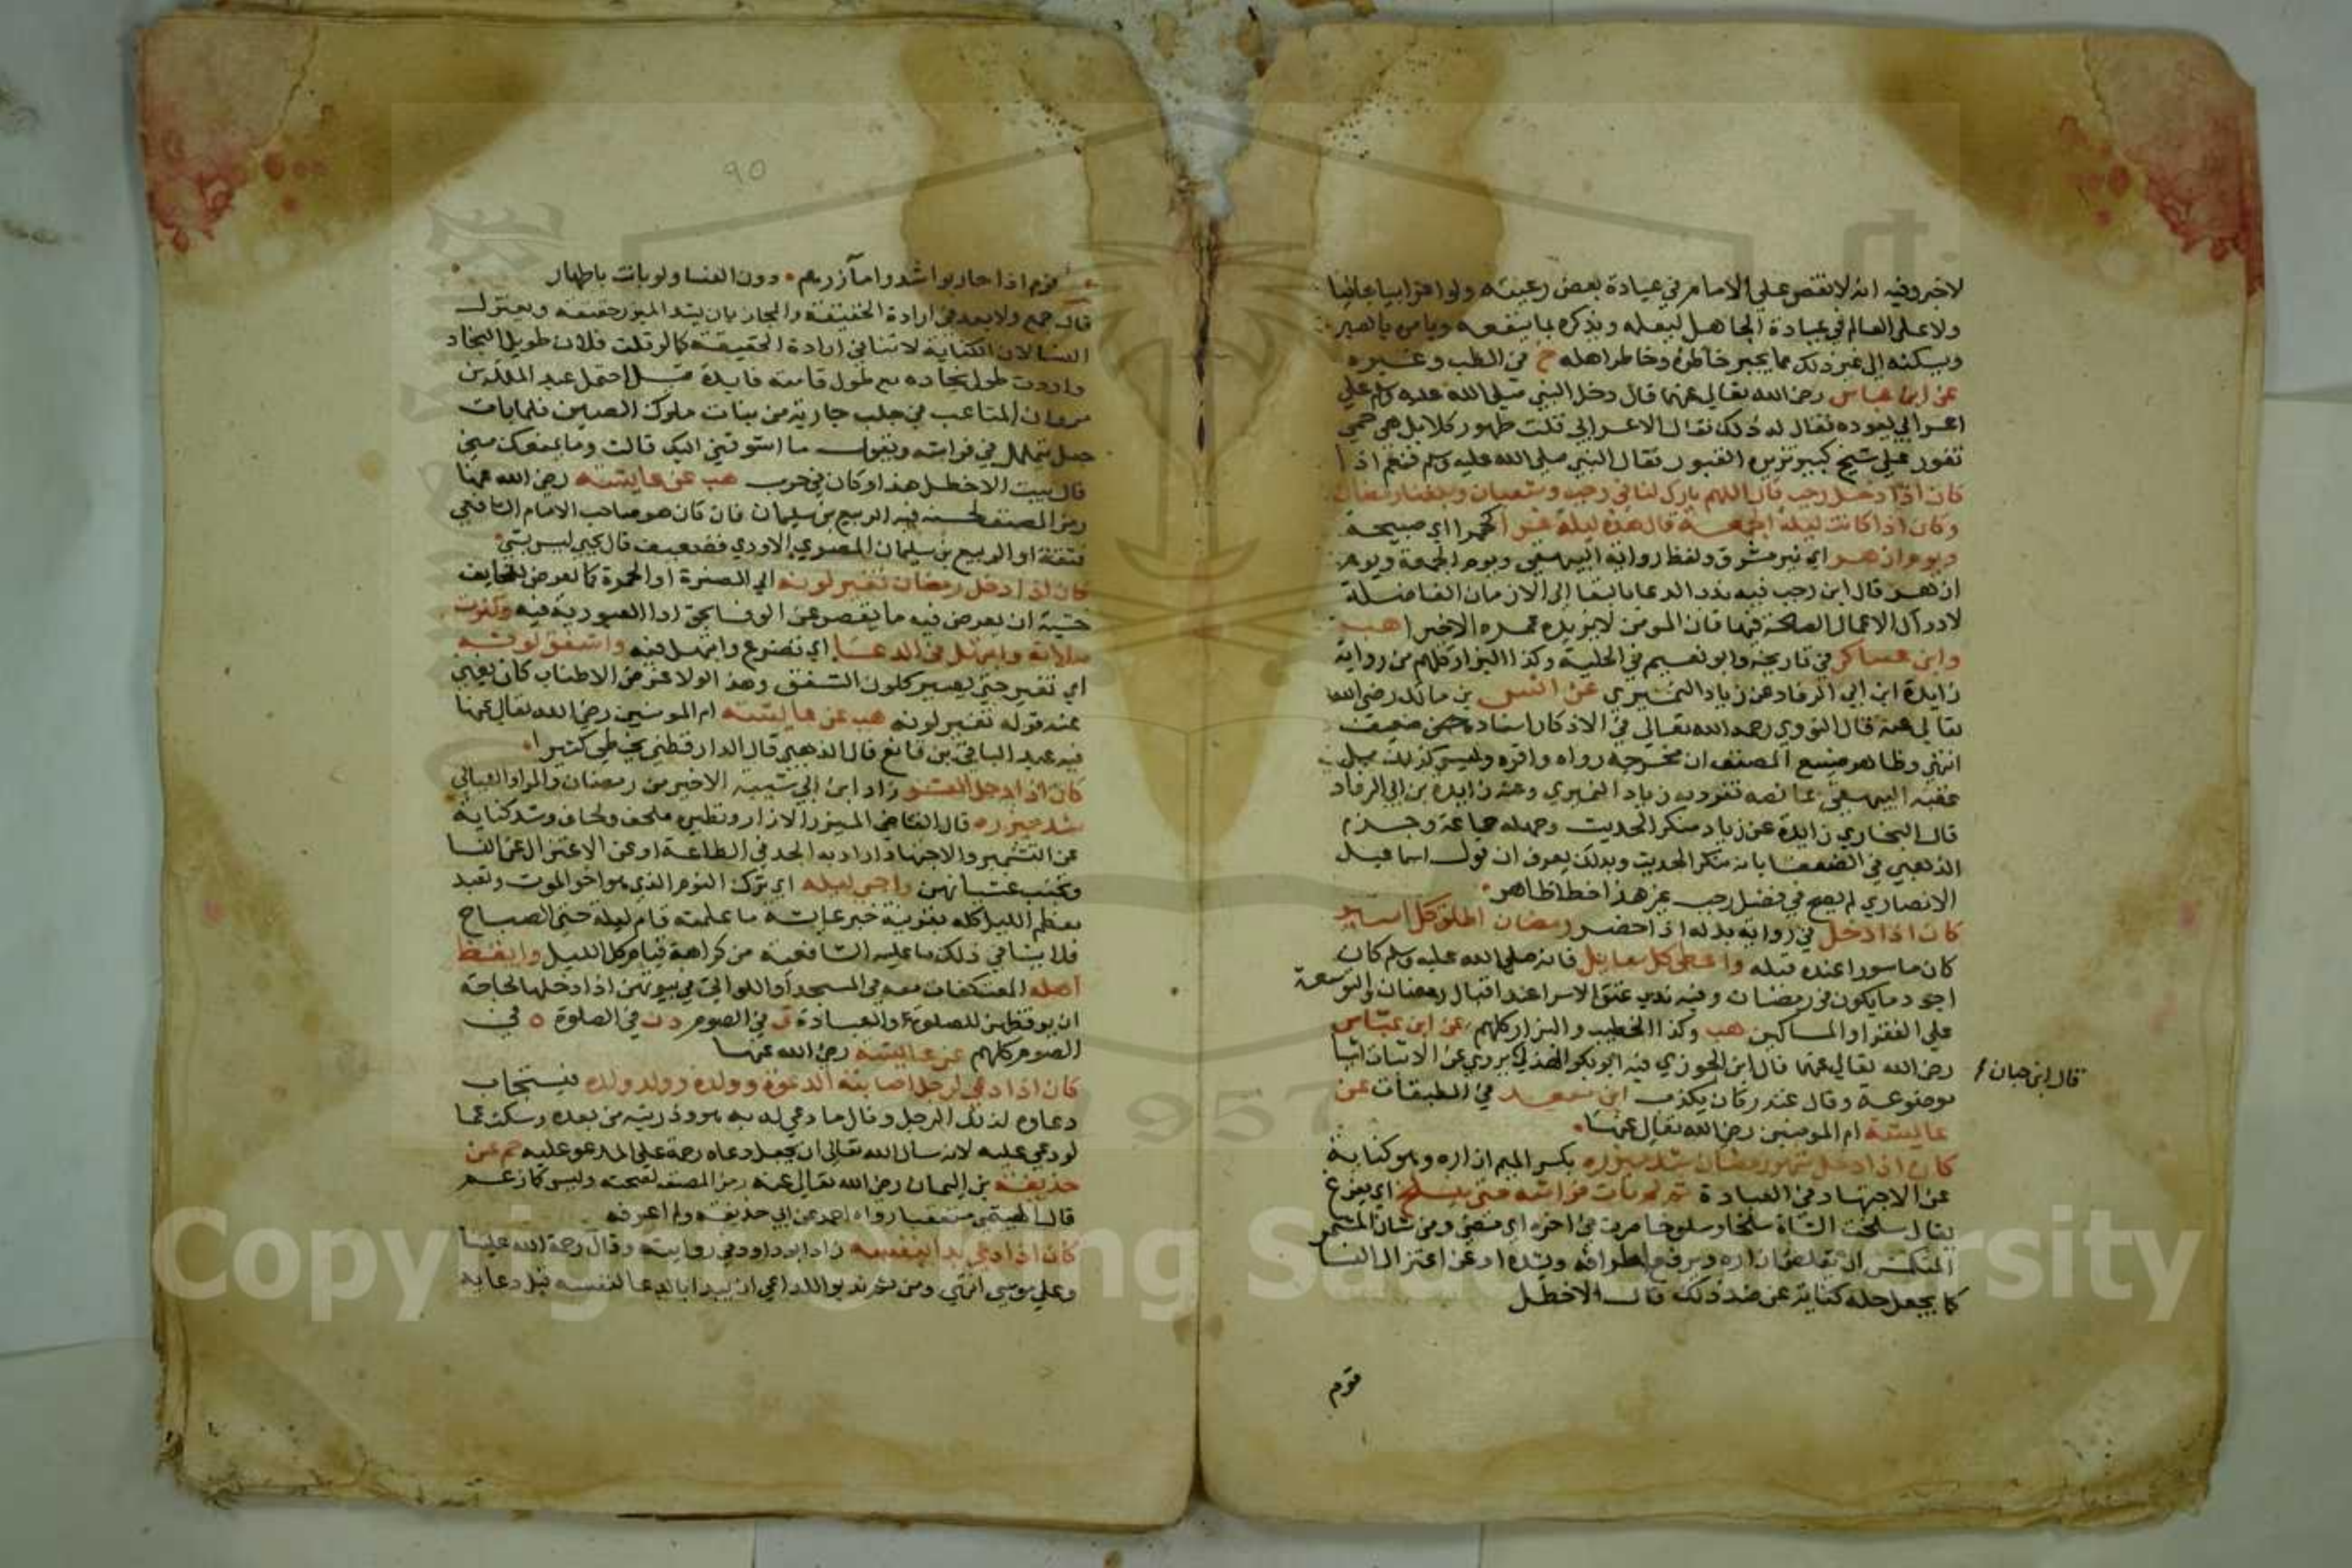 لاخبر وفيه انه لا نقص على الامام في عيادة بعض رعيته ولو اعرابيا جافيا
ولا على العالم في عيادة الجاهل ليعلمه ويذكره بما ينفعه ويامره بالصبر
ويسكنه الى غير ذلك مما يجبر خاطره وخاطر اهله خ في الطب وغيره
عن ابن عباس رضي الله تعالى عنهما قال دخل النبي صلى الله عليه وسلم على
اعرابي يعوده فقال له ذلك فقال الاعرابي قلت طهور كلا بل هي حمى
تفور على شيخ كبير تزيره القبور فقال النبي صلى الله عليه وسلم فنعم اذا
كان اذا دخل رجب قال اللهم بارك لنا في رجب وشعبان وبلغنا رمضان
وكان اذا كانت ليلة الجمعة قال هذه ليلة غرا كحمرا اي صبيحة
ويوم ازهر اي نير مشرق ولفظ رواية البيهقي ويوم الجمعة ويوم
ازهر قال ابن رجب فيه ندب الدعا بالبقا الى الازمان الفاضلة
لادراك الاعمال الصالحة فيها فان المومن لا يزيده عمره الا خيرا هب
وابن عساكر في تاريخه وابو نعيم في الحلية وكذا البزار كلهم من رواية
زايدة ابن ابي الرقاد عن زياد النميري عن انس بن مالك رضي الله
تعالى عنه قال النووي رحمه الله تعالى في الاذكار اسناده ضعيف
انتهى وظاهر صنيع المصنف ان مخرجه رواه واقره وليس كذلك بل
عقبه البيهقي بما نصه تفرد به زياد النميري وعنه زايدة بن ابي الرقاد
قال البخاري زايدة عن زياد منكر الحديث وجهله جماعة وجزم
الذهبي في الضعفا بانه منكر الحديث وبذلك يعرف ان قول اسماعيل
الانصاري لم يصح في فضل رجب غير هذا خطا ظاهر
كان اذا دخل في رواية بدله اذا حضر رمضان اطلق كل اسير
كان ماسورا عنده قبله واعطى كل سايل فانه صلى الله عليه وسلم كان
اجود ما يكون في رمضان وفيه ندب عتق الاسرا عند اقبال رمضان والتوسعة
على الفقرا والمساكين هب وكذا الخطيب والبزار كلهم عن ابن عباس
رضي الله تعالى عنهما قال ابن الجوزي فيه ابو بكر الهذلي يروي عن الاثبات اشيا
قال ابن حبان
موضوعة وقال غندر كان يكذب ابن سعد في الطبقات عن
عايشة ام المومنين رضي الله تعالى عنها
كان اذا دخل شهر رمضان شد ميزره بكسر الميم ازاره وهو كناية
عن الاجتهاد في العبادة ثم لم يات فراشه حتى ينسلخ اي يفرغ
يقال سلخت الشاة سلخا وسلوخا صرت في اخره اي مضى ومن شان المشمر
المنكمش ان يقلص ازاره ويرفع اطرافه ويشده او عن اعتزال النسا
كما يجعل حله كناية عن ضد ذلك قال الاخطل
قوم
90
قوم اذا حاربوا شدوا مآزرهم دون النسا ولو باتت باطهار
قال جمع ولا بعد في ارادة الحقيقة والمجاز بان يشد الميزر حقيقة ويعتزل
النسا لان الكناية لا تنافي ارادة الحقيقة كما لو قلت فلان طويل النجاد
واردت طول نجاده مع طول قامته فايدة احتمل عبد الملك بن
مروان المتاعب في جلب جارية من بنات ملوك الصين فلما بات
جعل يتململ في فراشه ويقول ما اشوقني اليك قالت وما يمنعك مني
قال بيت الاخطل هذا وكان في حرب هب عن عايشة رضي الله عنها
رمز المصنف لحسنه فيه الربيع بن سليمان فان كان هو صاحب الامام الشافعي
فثقة او الربيع بن سليمان المصري الازدي فضعيف قال يحيى ليس بشي
كان اذا دخل رمضان تغير لونه الى الصفرة او الحمرة كما يعرض للخايف
خشية ان يعرض فيه ما يقصر عن الوفا بحق ادا العبودية فيه وكثرت
صلاته وابتهل في الدعا اي تضرع واجتهد فيه واشفق لونه
اي تغير حتى يصير كلون الشفق وهذا لولا غرض الاطناب كان يغني
عنه قوله تغير لونه هب عن عايشة ام المومنين رضي الله تعالى عنها
فيه عبد الباقي بن قانع قال الذهبي قال الدارقطني يخطي كثيرا
كان اذا دخل العشر زاد ابن ابي شيبة الاخير من رمضان والمراد الليالي
شد ميزره قال القاضي الميزر الازار ونظيره ملحف ولحاف وشده كناية
عن التشمير والاجتهاد اراد به الجد في الطاعة او عن الاعتزال عن النسا
وتجنب غشيانهن واحيى ليله اي ترك النوم الذي هو اخو الموت وتعبد
معظم الليل لا كله بقرينة خبر عايشة ما علمته قام ليلة حتى الصباح
فلا ينافي ذلك ما عليه الشافعية من كراهة قيام كل الليل وايقظ
اهله المعتكفات معه في المسجد او اللواتي في بيوتهن اذا دخلها لحاجة
ان يوقظهن للصلوة والعبادة ق في الصوم د ن في الصلوة ه في
الصوم كلهم عن عايشة رضي الله عنها
كان اذا دعى لرجل اصابته الدعوة وولده وولد ولده فيستجاب
دعاوه لذلك الرجل وقال ما دعي له به هو وذريته من بعده وسكت عما
لو دعي عليه لانه سال الله تعالى ان يجعل دعاه رحمة على المدعو عليه حم عن
حذيفة بن اليمان رضي الله تعالى عنه رمز المصنف لصحته وليس كما زعم
قال الهيثمي متعقبا رواه احمد عن ابي حذيفة ولم اعرفه
كان اذا دعى بدا بنفسه زاد ابو داود في روايته وقال رحمة الله علينا
وعلى موسى انتهى ومن ثم ندبوا للداعي ان يبدا بالدعا لنفسه قبل دعايه
Copyright © King Saud University
1957